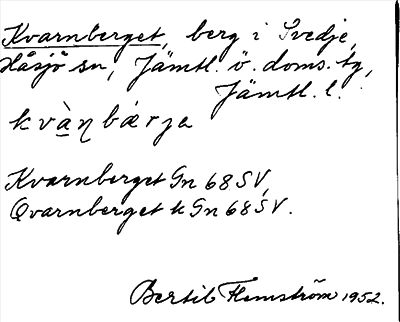 Kvarnberget, berg i Svedje,
Håsjö sn, Jämtl. ö. doms. tg,
Jämtl. l.
kvàn bár̩ja
Kvarnberget Gn 68 SV,
Qvarnberget k Gn 68 SV.
Bertil Flemström 1952.